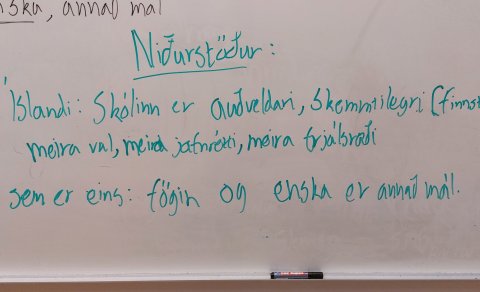 enska, annað mál
Niðurstöður:
Íslandi: Skólinn er auðveldari, skemmtilegri (finnst
meira val, meira jafnrétti, meira frjálsræði
sem er eins: fögin og enska er annað mál.